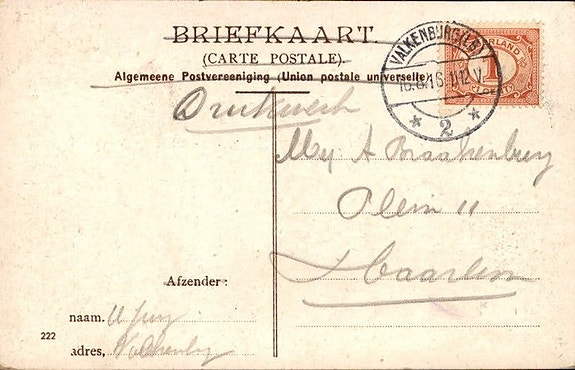 BRIEFKAART.
(CARTE POSTALE).
Algemeene Postvereeniging (Union postale universelle)
VALKENBURG (LB)
2
NEDERLAND
1
CENT
Drukwerk
Mej A Braakenburg
Plein 11
Haarlem
Afzender:
naam.
222
adres,